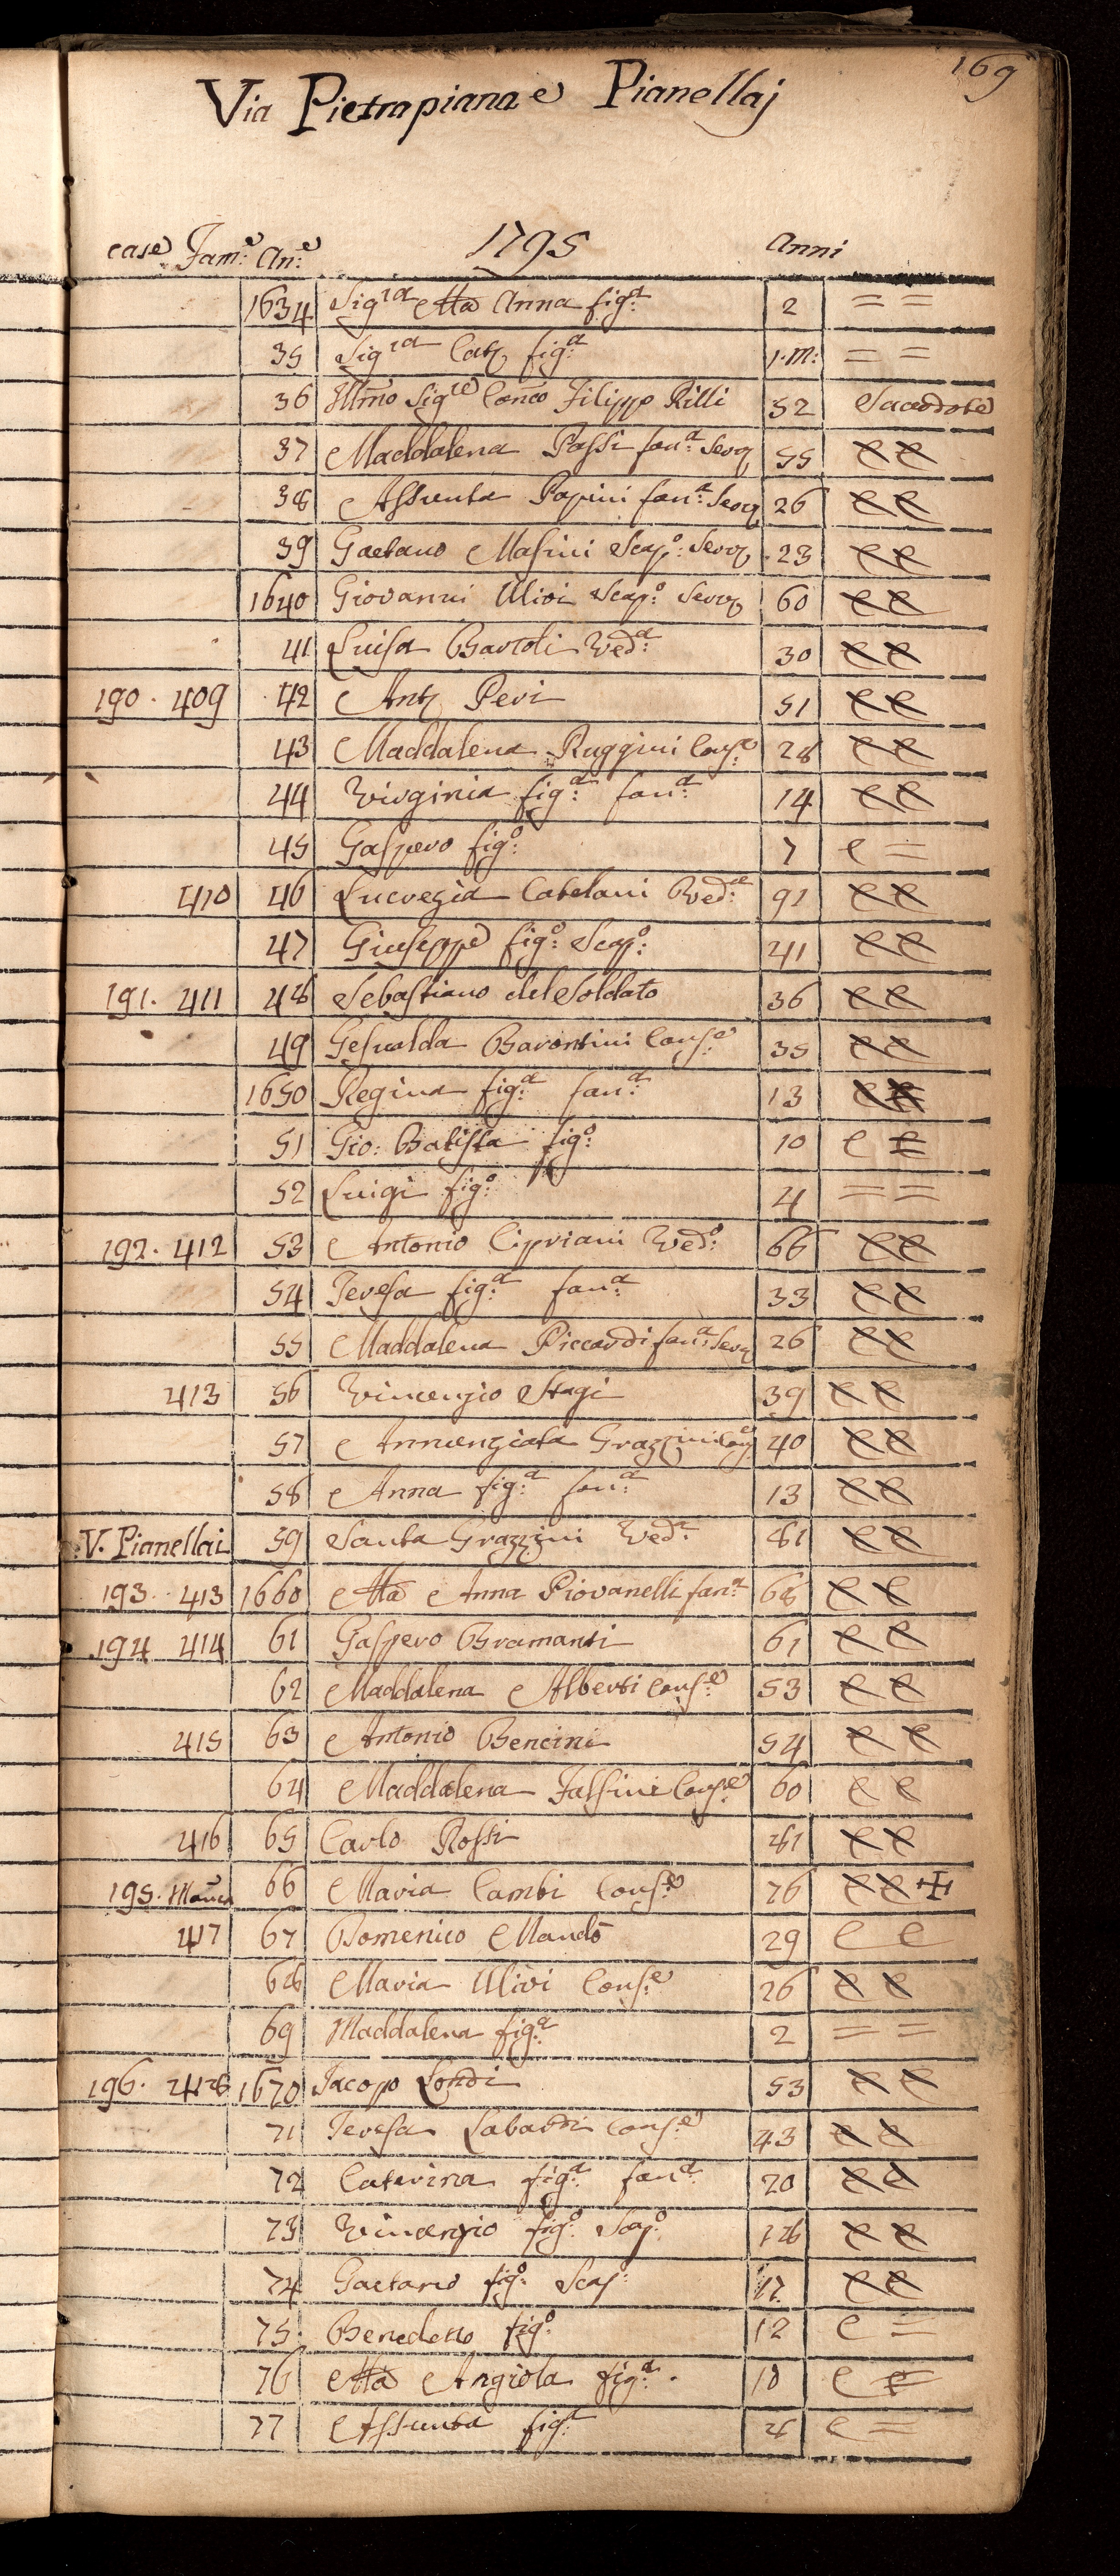 169
Via Pietrapiana e Pianellaj
case Fam.e An.e 1795 Anni
1634 Sig.ra Ma Anna fig.a 2 = =
35 Sig.ra Cat. fig.a 1.m: = =
36 Illmo Sig.re Canco Filippo Rilli 52 Sacerdote
37 Maddalena Passi fan.a Serv. 55 e e
38 Assunta Papini fan.a Serv. 26 e e
39 Gaetano Masini Scap.o Serv. 23 e e
1640 Giovanni Ulivi Scap.o Serv. 60 e e
41 Luisa Bartoli Ved.a 30 e e
190. 409 42 Ant. Peri 51 e e
43 Maddalena Ruggini Cons.e 28 e e
44 Virginia fig.a fan.a 14 e e
45 Gaspero fig.o 7 e =
410 46 Lucrezia Catelani Ved.a 91 e e
47 Giuseppe fig.o Scap.o 41 e e
191. 411 48 Sebastiano del Soldato 36 e e
49 Gesualda Barontini Cons.e 35 e e
1650 Regina fig.a fan.a 13 e e
51 Gio: Batista fig.o 10 e e
52 Luigi fig.o 4 = =
192. 412 53 Antonio Cipriani Ved.o 66 e e
54 Teresa fig.a fan.a 33 e e
55 Maddalena Piccardi fan.a Serv. 26 e e
413 56 Vincenzio Stagi 39 e e
57 Annunziata Grazzini Con.e 40 e e
58 Anna fig.a fan.a 13 e e
V. Pianellai 59 Santa Grazzini Ved.a 81 e e
193. 413 1660 Ma Anna Piovanelli fan.a 68 e e
194 414 61 Gaspero Bramanti 61 e e
62 Maddalena Alberti Cons.e 53 e e
415 63 Antonio Bencini 54 e e
64 Maddalena Falsini Cons.e 60 e e
416 65 Carlo Rossi 81 e e
195. 66 Maria Cambi Cons.e 76 e e +
417 67 Domenico Mandò 29 e e
68 Maria Ulivi Cons.e 26 e e
69 Maddalena fig.a 2 = =
196. 418 1670 Jacopo Londi 53 e e
71 Teresa Labardi Cons.e 43 e e
72 Caterina fig.a fan.a 20 e e
73 Vincenzio fig.o Scap.o 18 e e
74 Gaetano fig.o Scap. 17 e e
75 Benedetto fig.o 12 e =
76 Ma Angiola fig.a 10 e e
77 Assunta fig.a e =